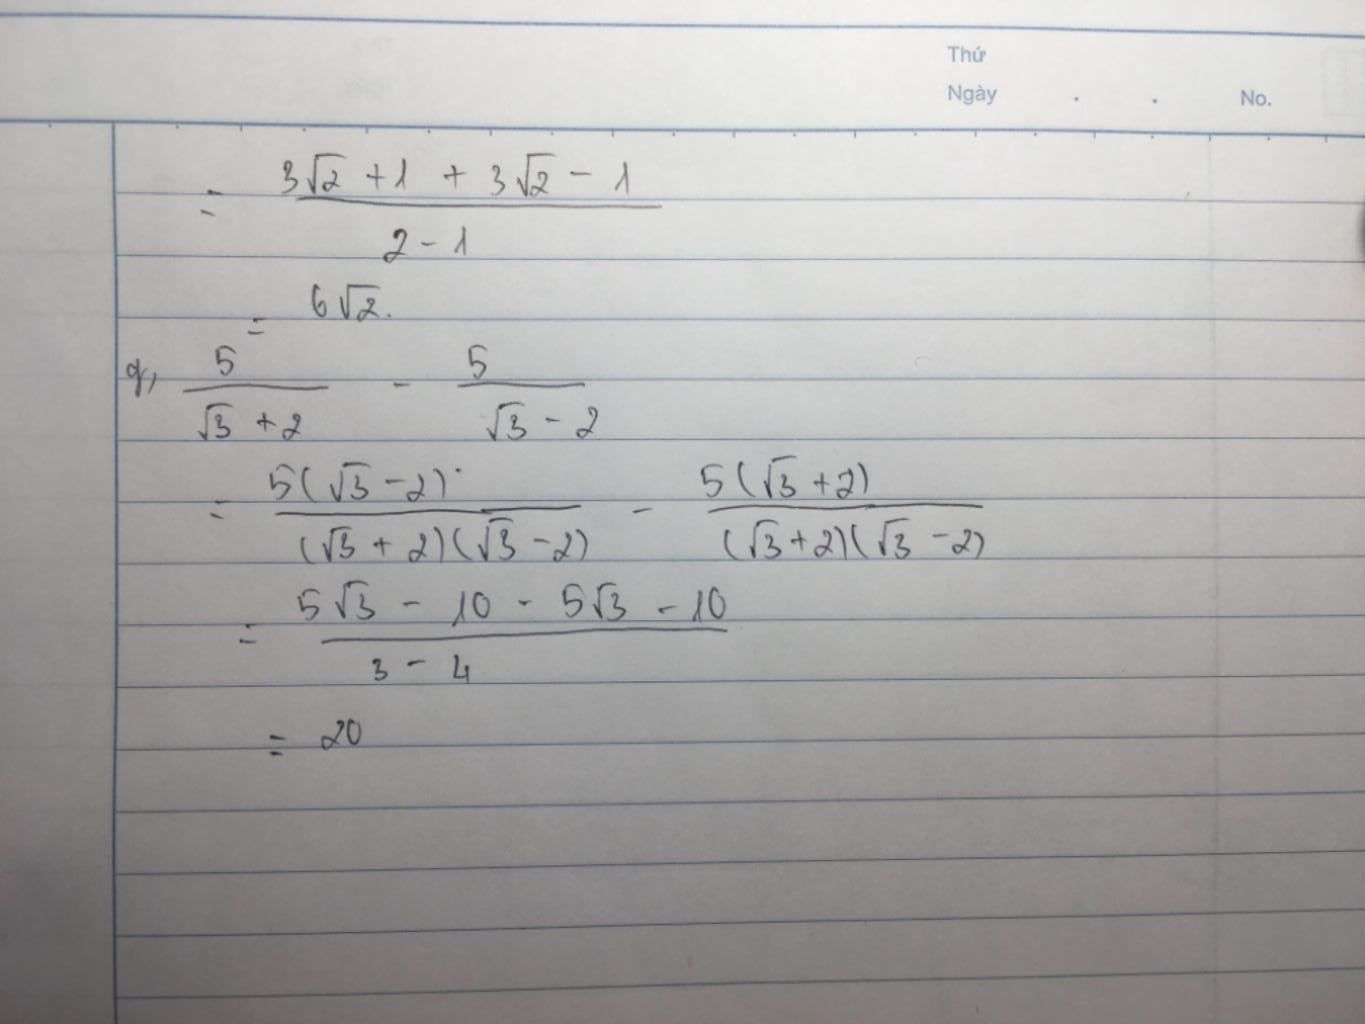 Thứ
Ngày . . No.
= (3√2 + 1 + 3√2 - 1) / (2 - 1)
= 6√2.
g, 5 / (√3 + 2) - 5 / (√3 - 2)
= 5(√3 - 2) / (√3 + 2)(√3 - 2) - 5(√3 + 2) / (√3 + 2)(√3 - 2)
= (5√3 - 10 - 5√3 - 10) / (3 - 4)
= 20